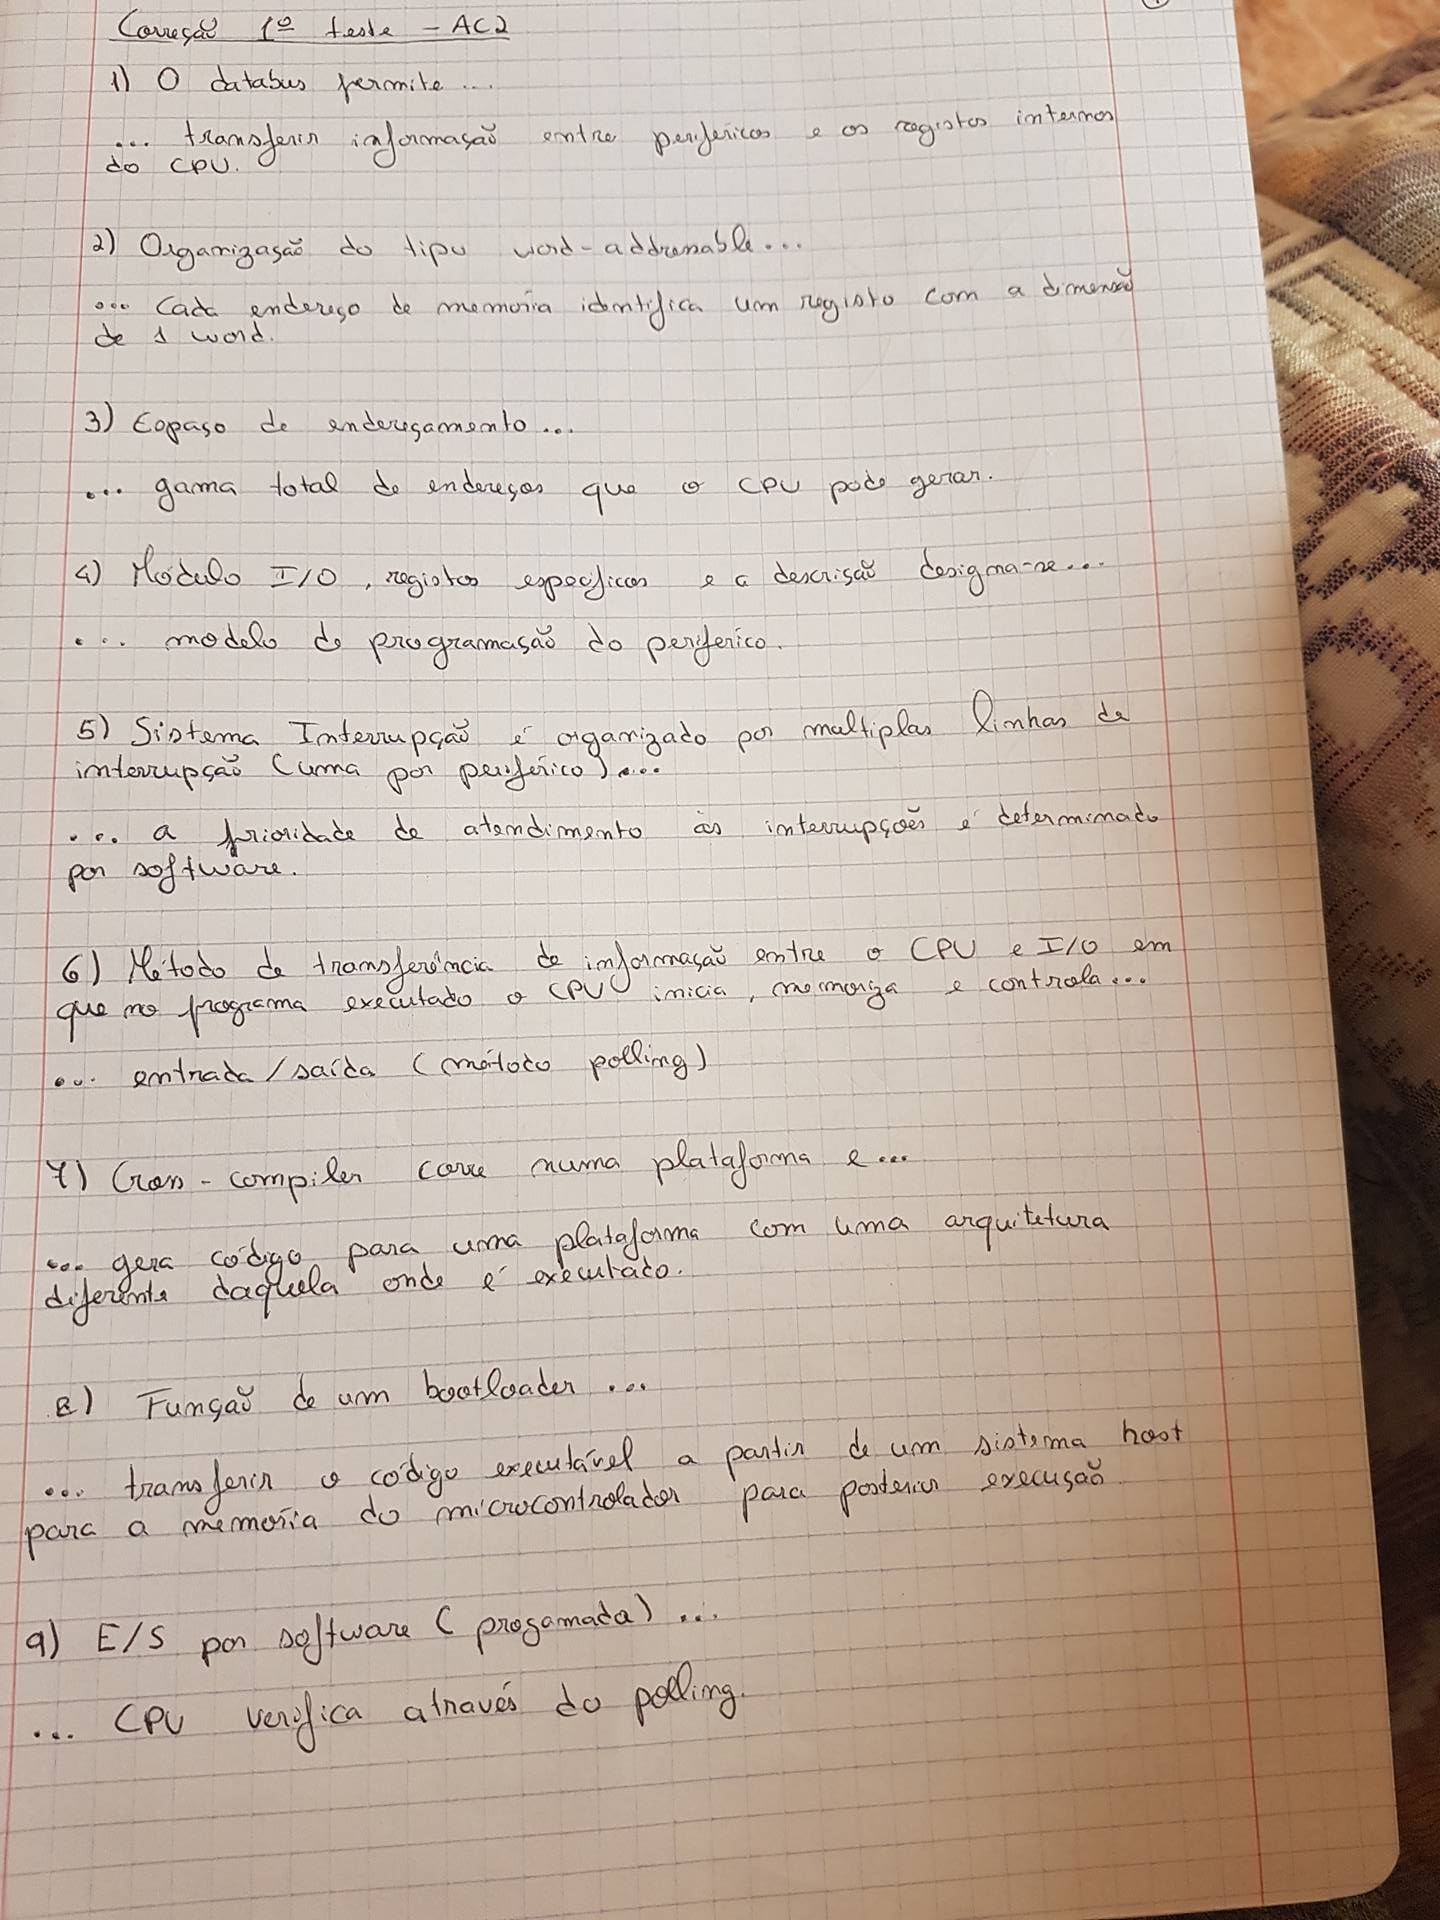 Correção 1º teste - AC2
1) O databus permite...
... transferir informação entre perifericos e os registos internos
do CPU.
2) Organização do tipo word-addressable...
... Cada endereço de memória identifica um registo com a dimensão
de 1 word.
3) Espaço de endereçamento...
... gama total de endereços que o CPU pode gerar.
4) Módulo I/O, registos especificos e a descrição designa-se...
... modelo de programação do periferico.
5) Sistema Interrupção é organizado por multiplas linhas de
interrupção (uma por periférico)...
... a prioridade de atendimento às interrupções é determinado
por software.
6) Método de transferência de informação entre o CPU e I/O em
que no programa executado o CPU inicia, e controla...
... entrada/saída (método polling)
7) Cross-compiler corre numa plataforma e...
... gera código para uma plataforma com uma arquitetura
diferente daquela onde é executado.
8) Função de um bootloader...
... transferir o código executável a partir de um sistema host
para a memória do microcontrolador para posterior execução
9) E/S por software (progamada)...
... CPU verifica através do polling.